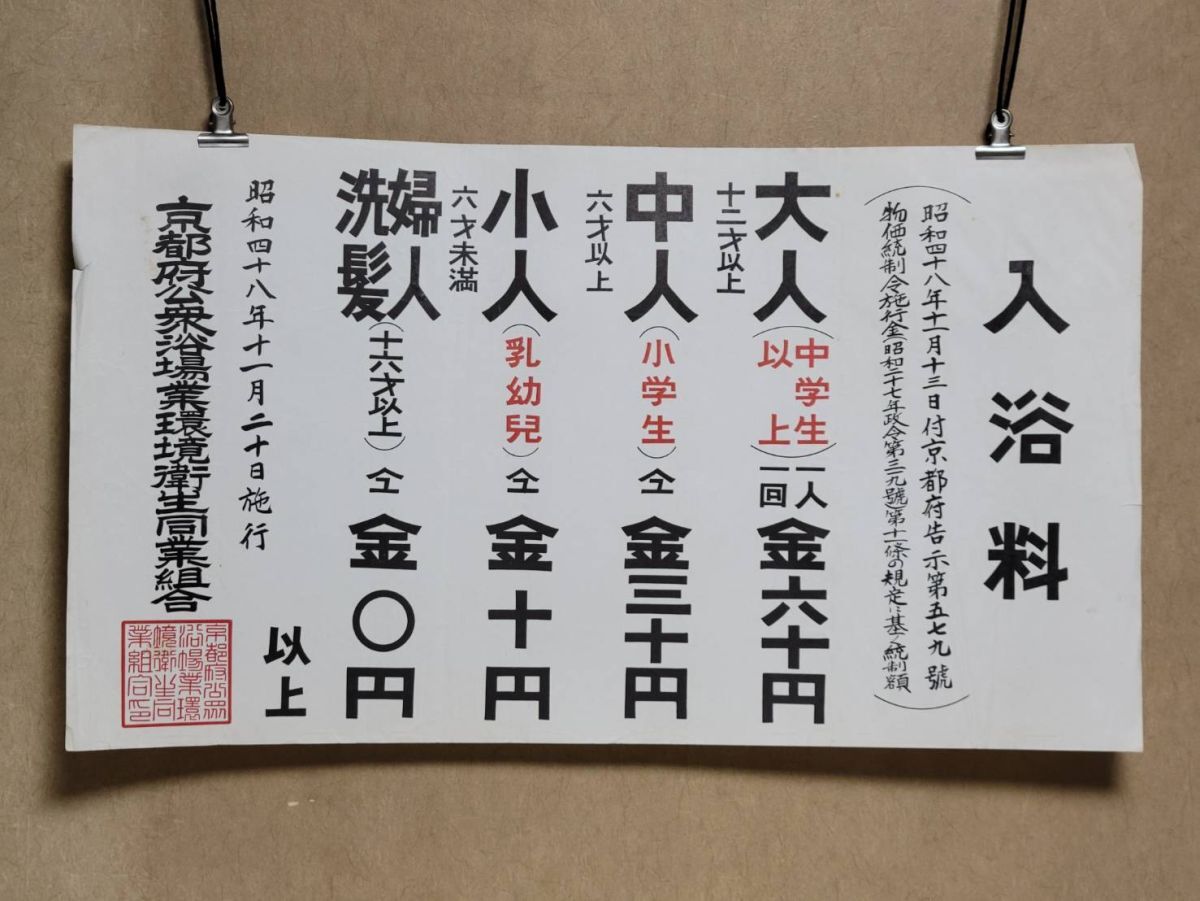 入浴料
(昭和四十八年十一月十三日付京都府告示第五七九號
物価統制令施行金(昭和二十七年政令第三一九號)第十一條の規定ニ基ク統制額)
大人
十二才以上
(中学生以上)
一人一回
金六十円
中人
六才以上
(小学生)
仝
金三十円
小人
六才未満
(乳幼兒)
仝
金十円
婦人洗髪
(十六才以上)
仝
金〇円
以上
昭和四十八年十一月二十日施行
京都府公衆浴場業環境衛生同業組合
京都府公衆
浴場業環
境衛生同
業組合印